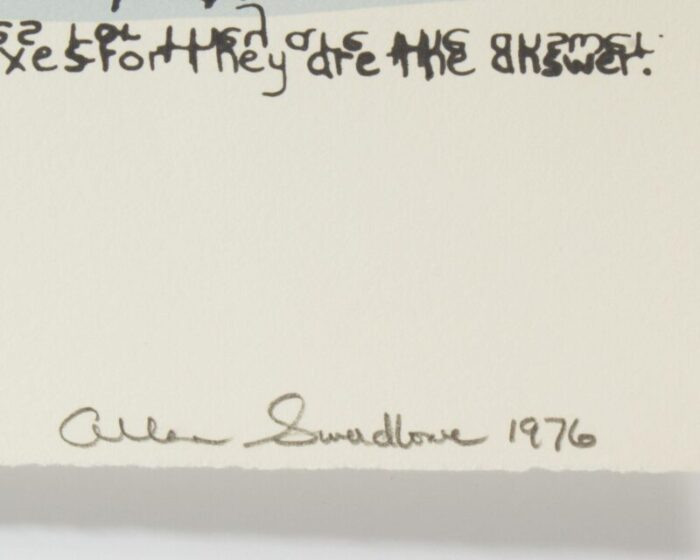 xes for they are the answer.
Allan Swadlowe 1976